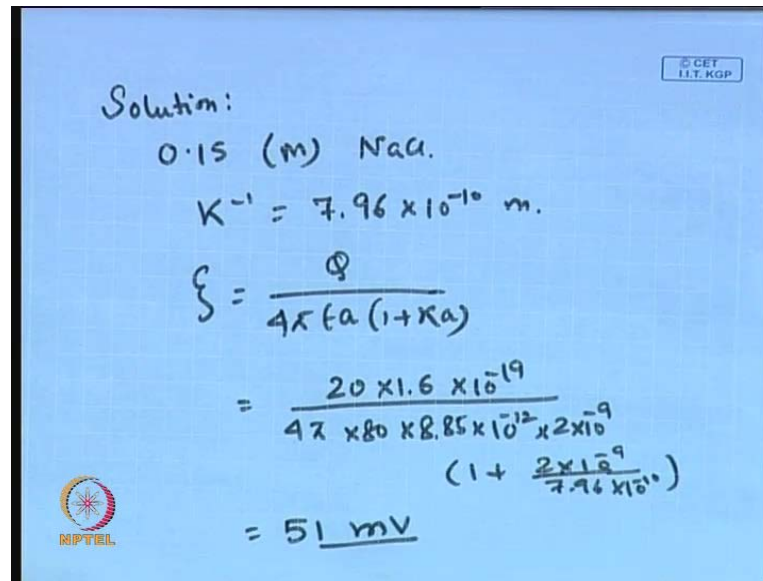 © CET
I.I.T. KGP
Solution:
0.15 (M) NaCl.
K⁻¹ = 7.96 × 10⁻¹⁰ m.
ξ = Q / 4π ϵa (1 + κa)
= 20 × 1.6 × 10⁻¹⁹ / 4π × 80 × 8.85 × 10⁻¹² × 2 × 10⁻⁹
(1 + 2 × 10⁻⁹ / 7.96 × 10⁻¹⁰)
= 51 mV
NPTEL